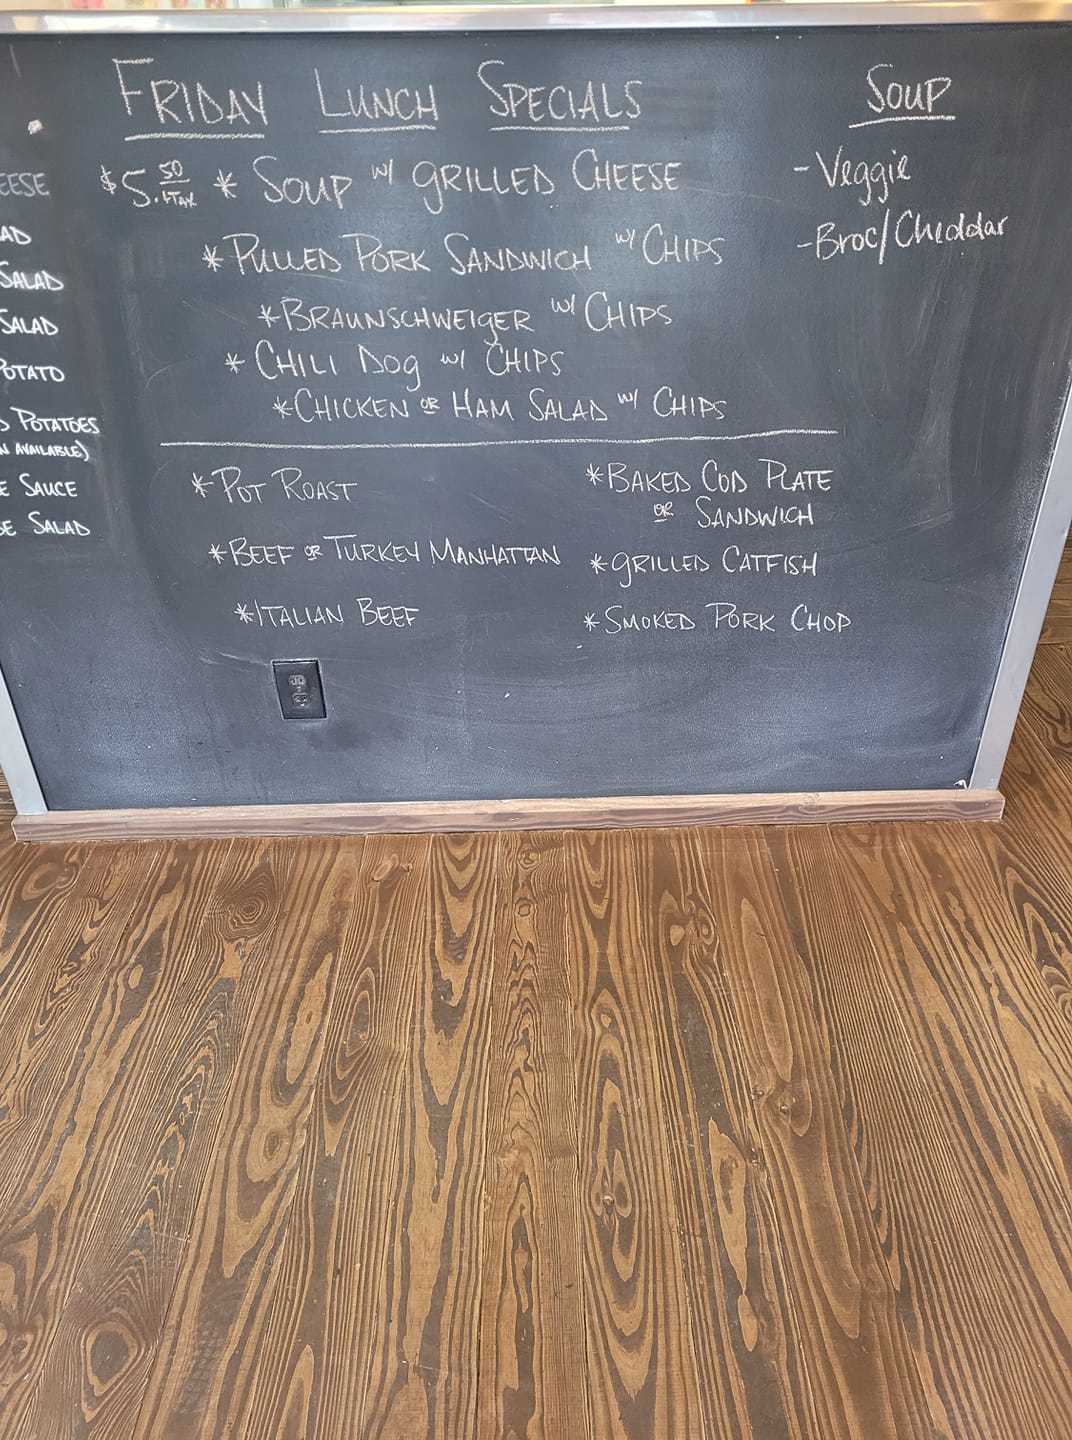 FRIDAY LUNCH SPECIALS
$5.50 +TAX * SOUP w/ GRILLED CHEESE
* PULLED PORK SANDWICH w/ CHIPS
* BRAUNSCHWEIGER w/ CHIPS
* CHILI DOG w/ CHIPS
* CHICKEN OR HAM SALAD w/ CHIPS
* POT ROAST
* BEEF OR TURKEY MANHATTAN
* ITALIAN BEEF
* BAKED COD PLATE
OR SANDWICH
* GRILLED CATFISH
* SMOKED PORK CHOP
SOUP
- Veggie
- Broc/Cheddar
EESE
AD
SALAD
SALAD
POTATO
D POTATOES
N AVAILABLE)
E SAUCE
SE SALAD